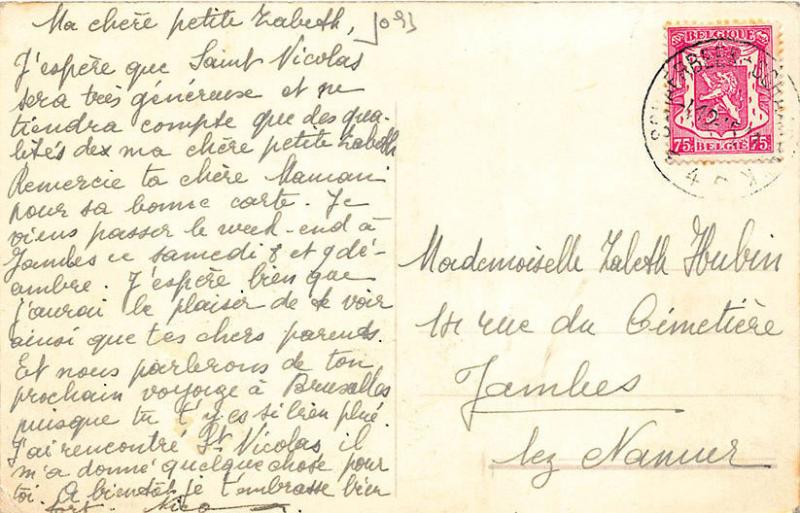 Ma chère petite Zabeth,
J'espère que Saint Nicolas
sera très généreuse et ne
tiendra compte que des qua-
lités de ma chère petite Zabeth
Remercie ta chère Maman
pour sa bonne carte. Je
viens passer le week-end à
Jambes ce samedi 8 et 9 dé-
cembre. J'espère bien que
j'aurai le plaisir de te voir
ainsi que tes chers parents.
Et nous parlerons de ton
prochain voyage à Bruxelles
puisque tu t'y es si bien plu.
J'ai rencontré St Nicolas il
m'a donné quelque chose pour
toi. A bientôt je t'embrasse bien
fort.
BELGIQUE
75c 75c
BELGIE
Mademoiselle Zabeth Hubin
rue du Cimetière
Jambes
lez Namur